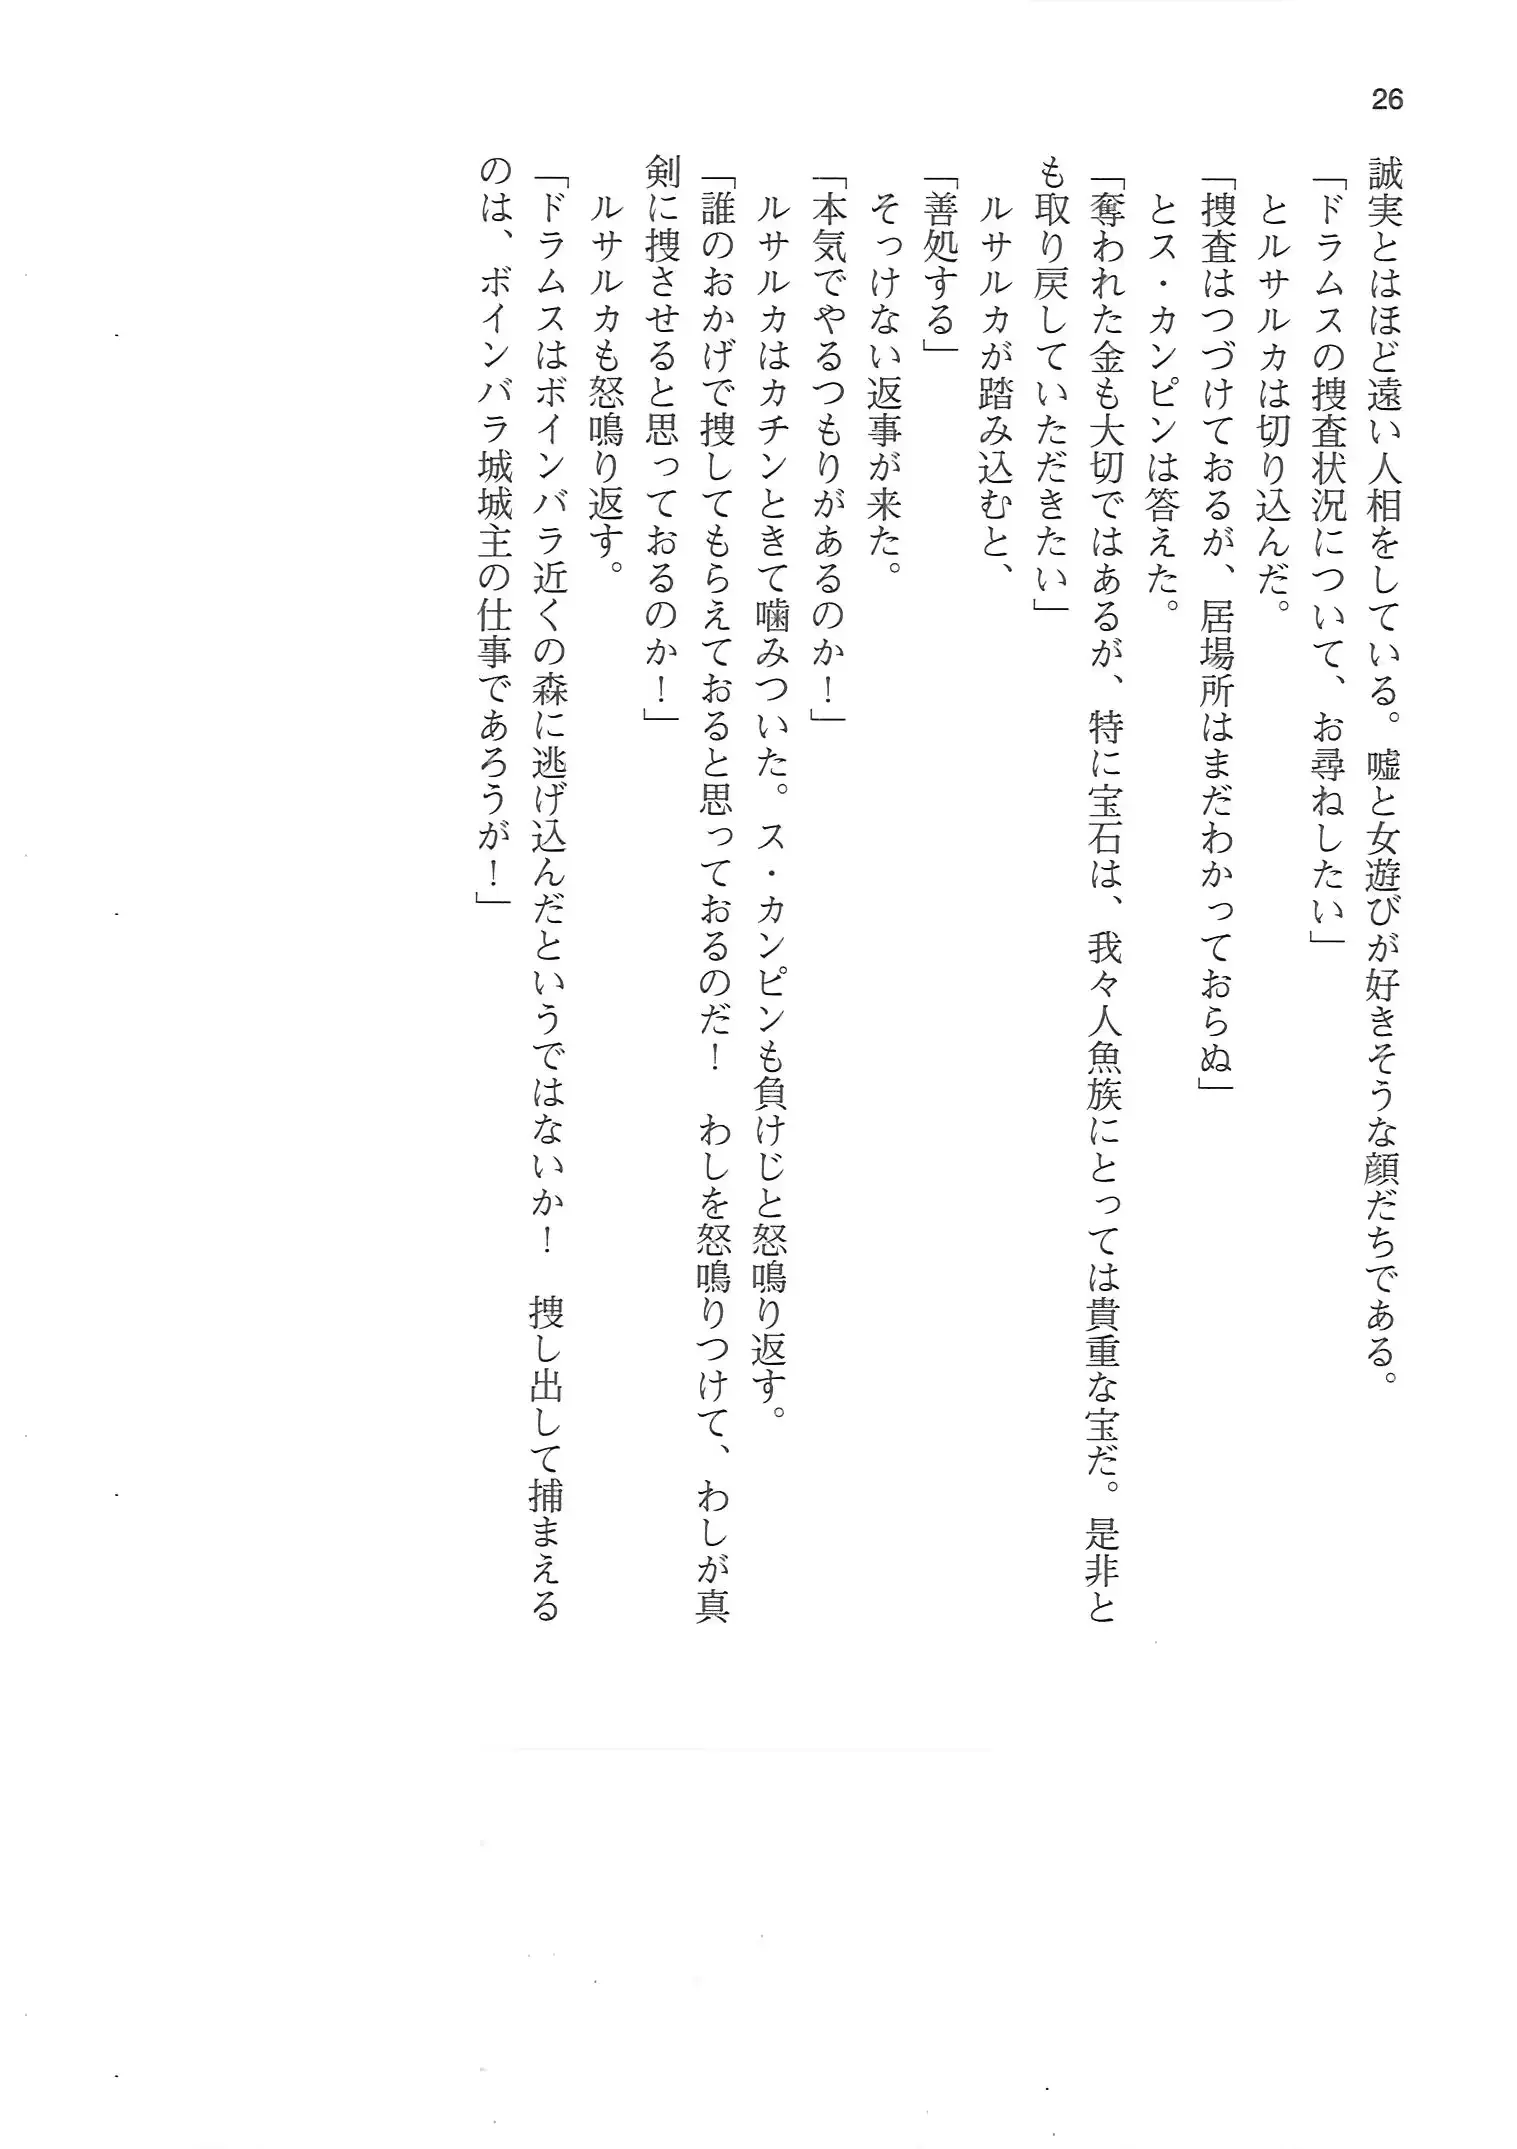 26
誠実とはほど遠い人相をしている。嘘と女遊びが好きそうな顔だちである。
「ドラムスの捜査状況について、お尋ねしたい」
とルサルカは切り込んだ。
「捜査はつづけておるが、居場所はまだわかっておらぬ」
とス・カンピンは答えた。
「奪われた金も大切ではあるが、特に宝石は、我々人魚族にとっては貴重な宝だ。是非と
も取り戻していただきたい」
ルサルカが踏み込むと、
「善処する」
そっけない返事が来た。
「本気でやるつもりがあるのか！」
ルサルカはカチンときて噛みついた。ス・カンピンも負けじと怒鳴り返す。
「誰のおかげで捜してもらえておると思っておるのだ！　わしを怒鳴りつけて、わしが真
剣に捜させると思っておるのか！」
ルサルカも怒鳴り返す。
「ドラムスはボインバラ近くの森に逃げ込んだというではないか！　捜し出して捕まえる
のは、ボインバラ城城主の仕事であろうが！」